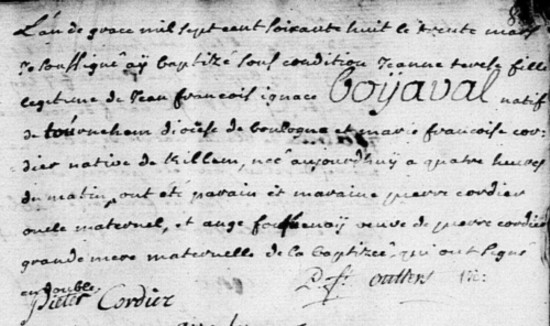 L'an de grace mil sept cent soixante huit le trente mars
Je soussigné aÿ baptizé sous condition Jeanne terese fille
legitime de Jean francois ignace Boÿaval natif
de tournehem diocese de boulogne et marie francoise cor-
dier native de Killem, neé aujourdhuÿ a quatre heures
du matin, ont eté parain et maraine pierre cordier
oncle maternel, et ange veuve de pierre cordier
grande mere maternelle de la baptizeé qui ont signé
en double
Pieter Cordier